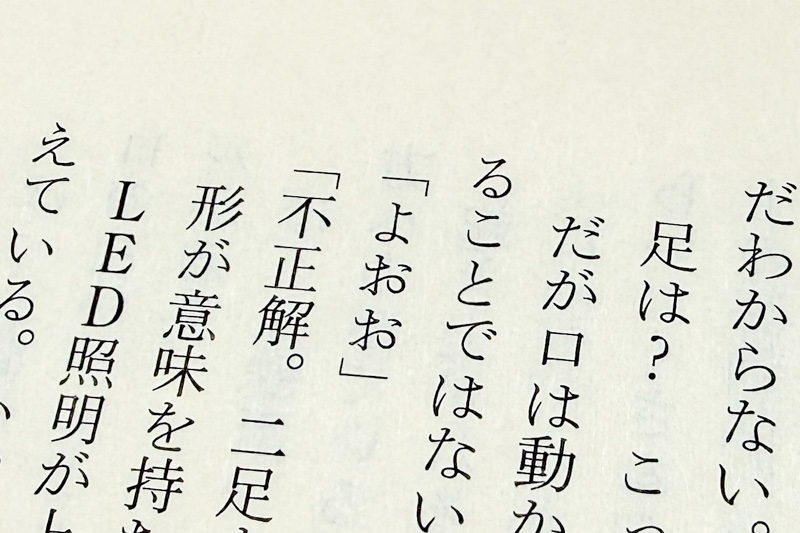 だわからない。
足は？　こっ
だが口は動か
ることではない
「よおお」
「不正解。　二足
形が意味を持
LED照明が
えている。